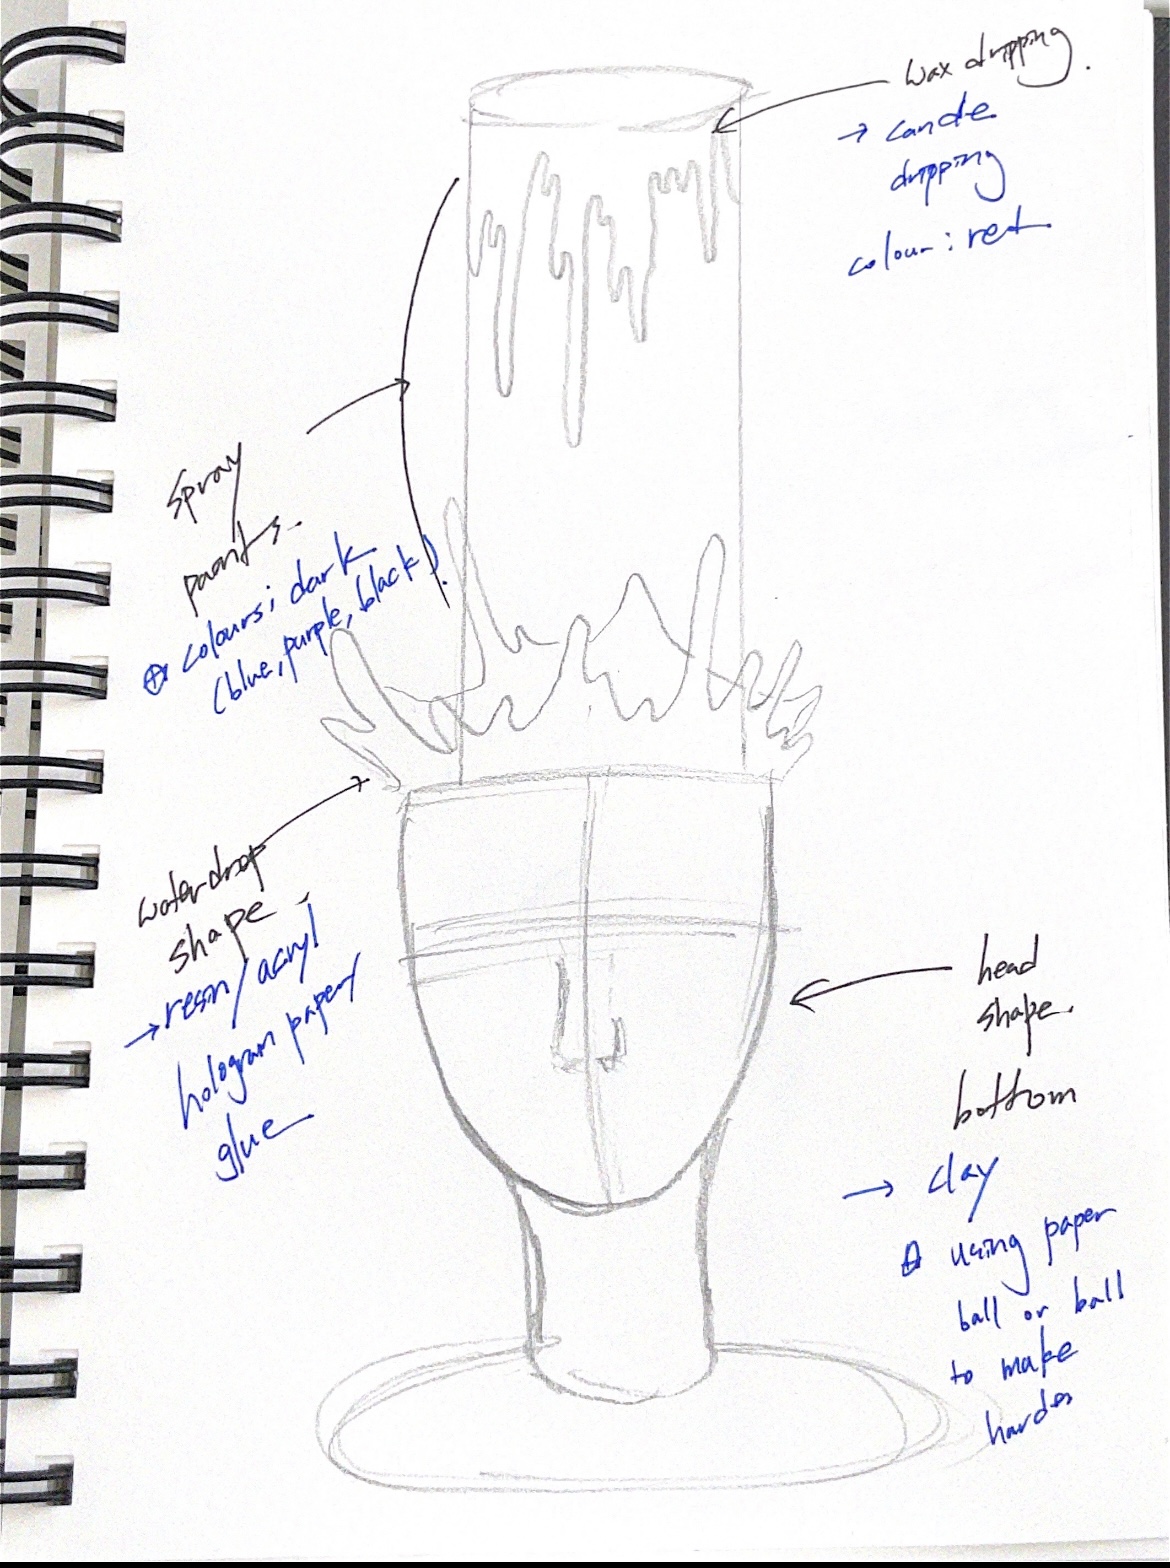 wax dripping.
→ candle
dripping
colour: red
spray
paints.
⊕ colours; dark
(blue, purple, black)
waterdrop
shape
→ resin/acryl
hologram paper/
glue
head
shape.
bottom
→ clay
⊕ using paper
ball or ball
to make
harder